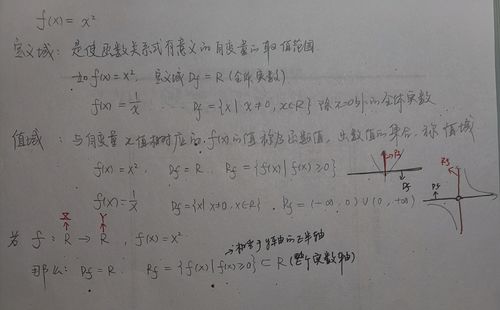 f(x) = x²
定义域: 是使函数关系式有意义的自变量的取值范围
如 f(x) = x², 定义域 Df = R (全体实数)
f(x) = 1/x Df = {x | x ≠ 0, x∈R} 除x=0外的全体实数
值域: 与自变量 x 值相对应的 f(x) 的值称为函数值, 函数值的集合, 称值域
f(x) = x², Df = R, Rf = {f(x) | f(x) ≥ 0}
Rf
Df
f(x) = 1/x Df = {x | x ≠ 0, x∈R}, Rf = (-∞, 0) ∪ (0, +∞)
Rf
Df
X Y
若 f: R → R, f(x) = x²
→ 相当于 y轴的正半轴
那么: Df = R, Rf = {f(x) | f(x) ≥ 0} ⊂ R (整个实数轴)